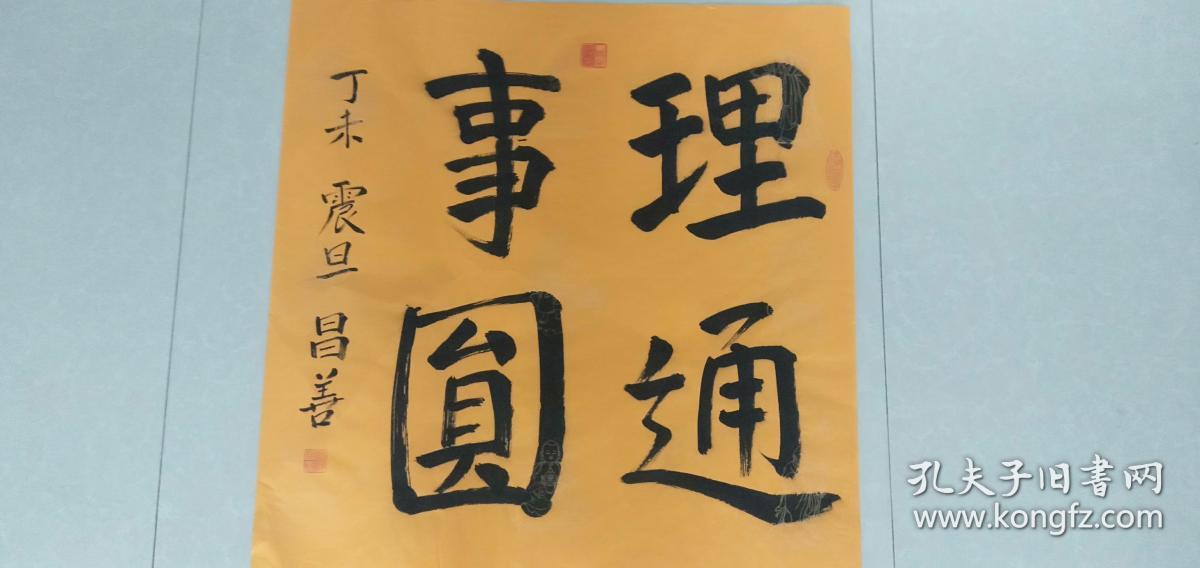 理通
事圓
丁未 震旦 昌善
孔夫子旧書网
www.kongfz.com